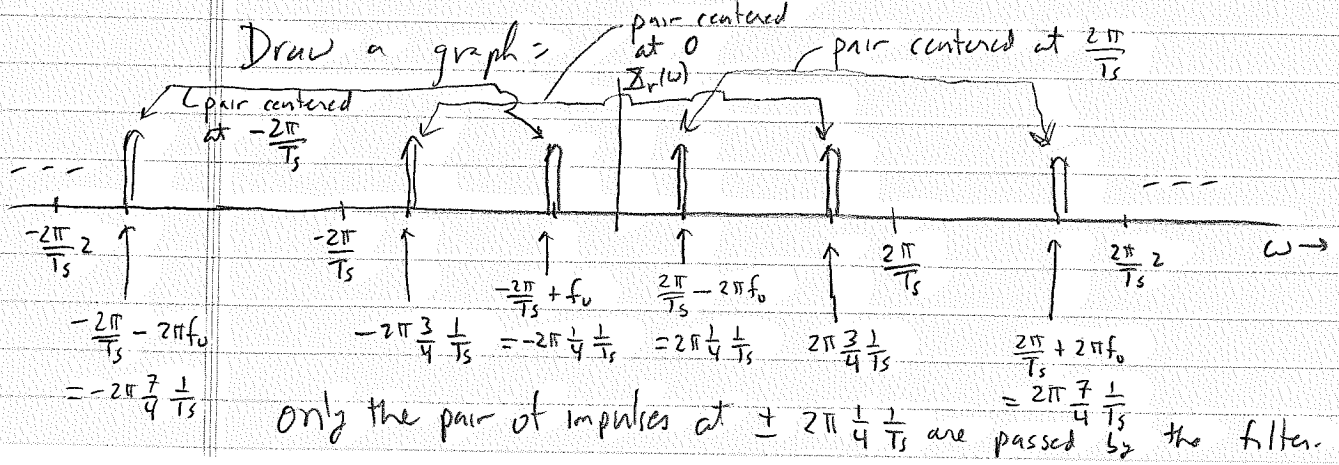 Draw a graph =
pair centered
at 0
X_r(ω)
pair centered at 2π/Ts
pair centered
at -2π/Ts
- - -
- - -
-2π/Ts 2
-2π/Ts
2π/Ts
2π/Ts 2
ω →
-2π/Ts - 2πf₀
= -2π 7/4 1/Ts
-2π 3/4 1/Ts
-2π/Ts + f₀
= -2π 1/4 1/Ts
2π/Ts - 2πf₀
= 2π 1/4 1/Ts
2π 3/4 1/Ts
2π/Ts + 2πf₀
= 2π 7/4 1/Ts
only the pair of impulses at ± 2π 1/4 1/Ts are passed by the filter.